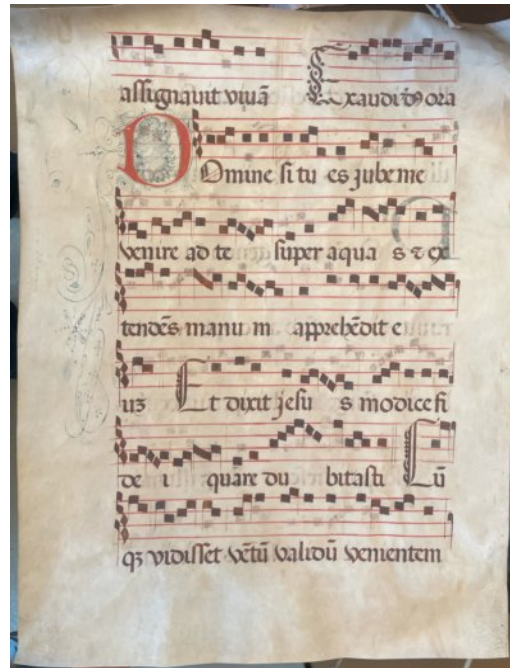 assignavit vivā Exaudi dñs ora
DOmine si tu es jube me
venire ad te super aqua s & ex
tendēs manu m apprehēdit e
uʒ Et dixit jesu s modice fi
de i quare du bitasti Cū
qʒ vidisset vētū validū venientem